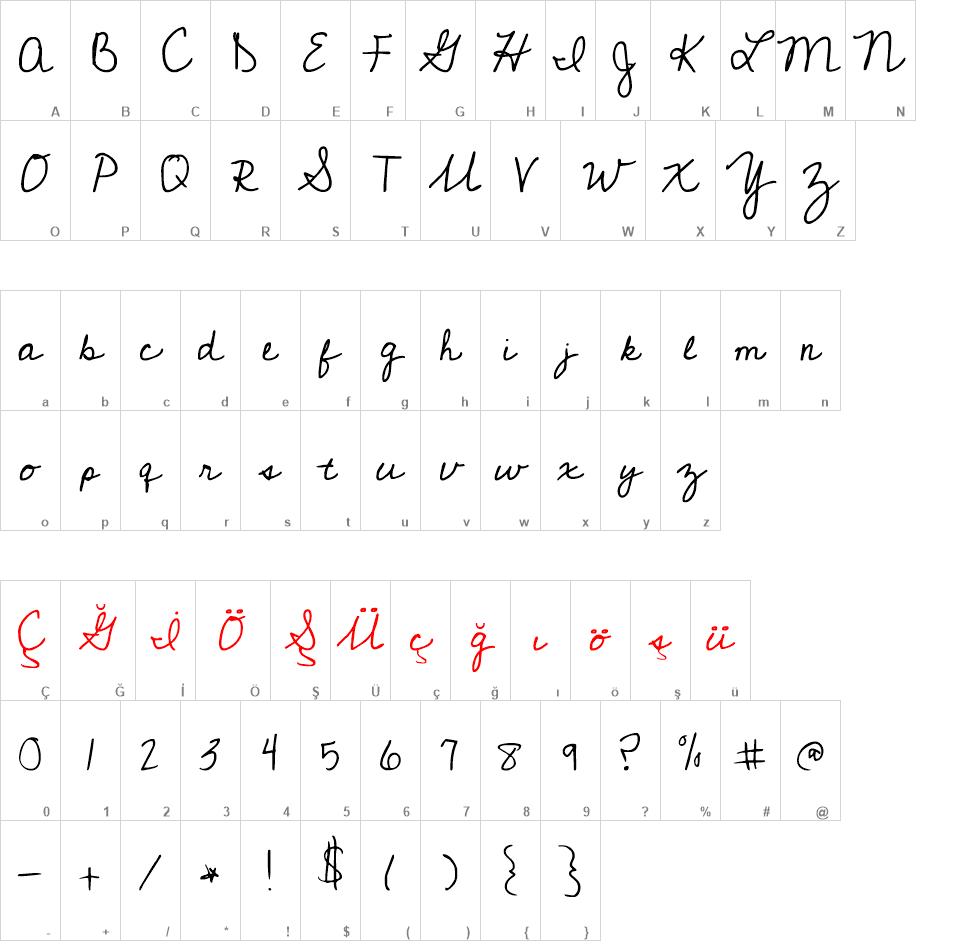 A B C D E F G H I J K L M N
A B C D E F G H I J K L M N
O P Q R S T U V W X Y Z
O P Q R S T U V W X Y Z
a b c d e f g h i j k l m n
a b c d e f g h i j k l m n
o p q r s t u v w x y z
o p q r s t u v w x y z
Ç Ğ İ Ö Ş Ü ç ğ ı ö ş ü
Ç Ğ İ Ö Ş Ü ç ğ ı ö ş ü
0 1 2 3 4 5 6 7 8 9 ? % # @
0 1 2 3 4 5 6 7 8 9 ? % # @
- + / * ! $ ( ) { }
- + / * ! $ ( ) { }